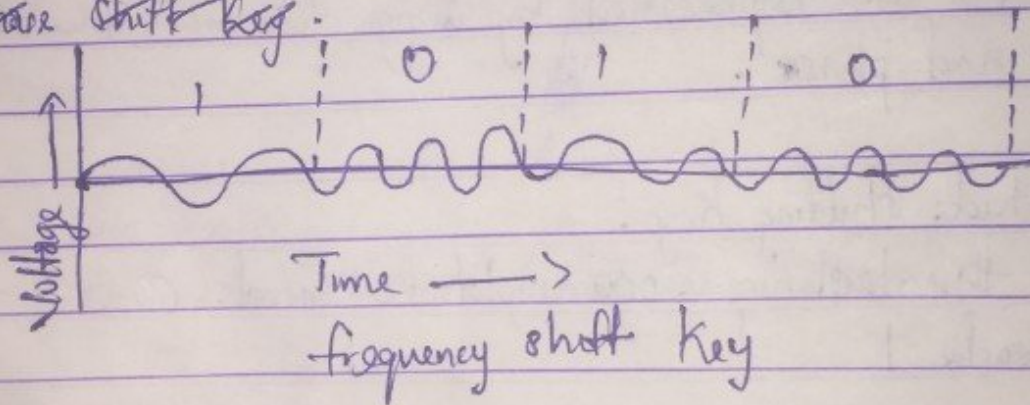 shift key.
1 0 1 0
Voltage
Time
frequency shift Key